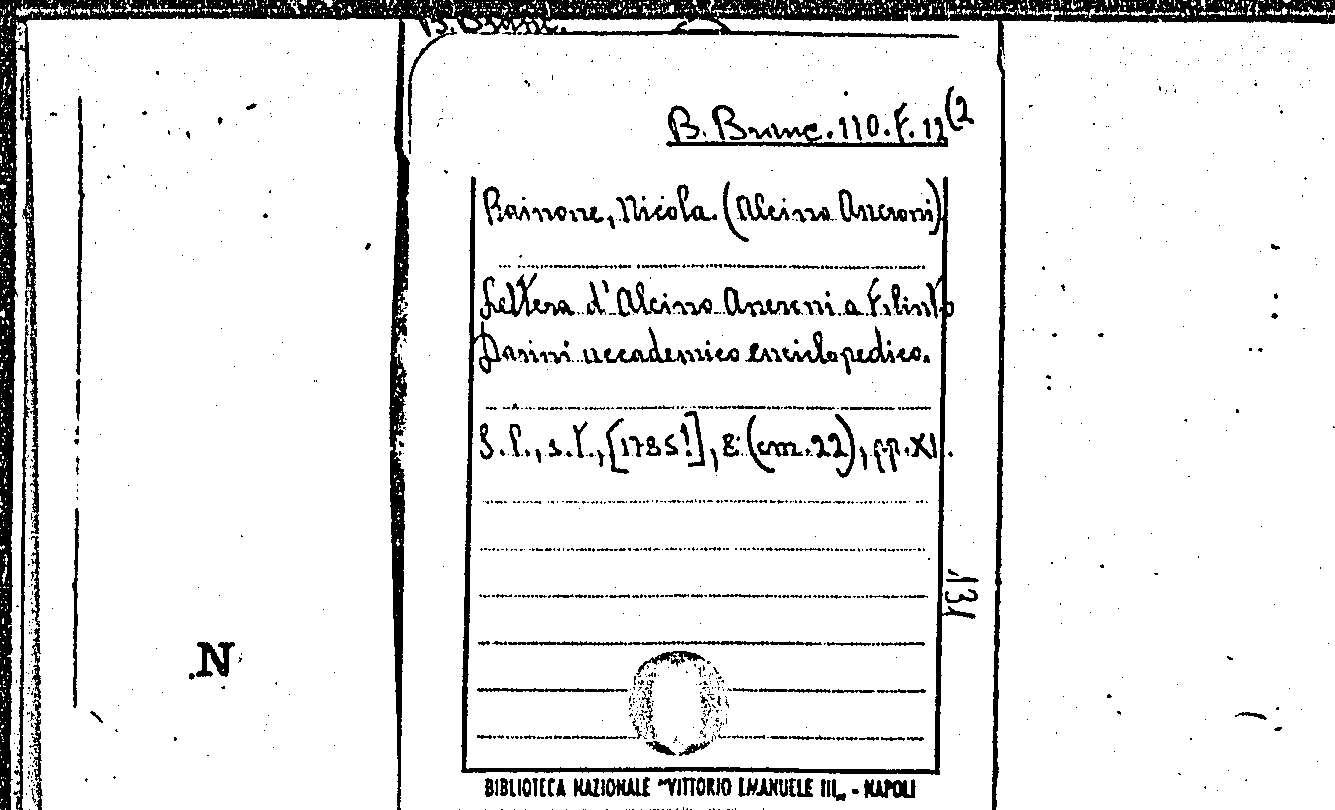 B. Branc. 110. F. 12(2
Rainone, Nicola. (Alcino Aneroni)
Lettera d'Alcino Aneroni a Filinto
Dasini accademico enciclopedico.
S.l., s.t., [1785!], 8. (cm. 22), pp. XI.
131
.N
BIBLIOTECA NAZIONALE "VITTORIO EMANUELE III„ - NAPOLI